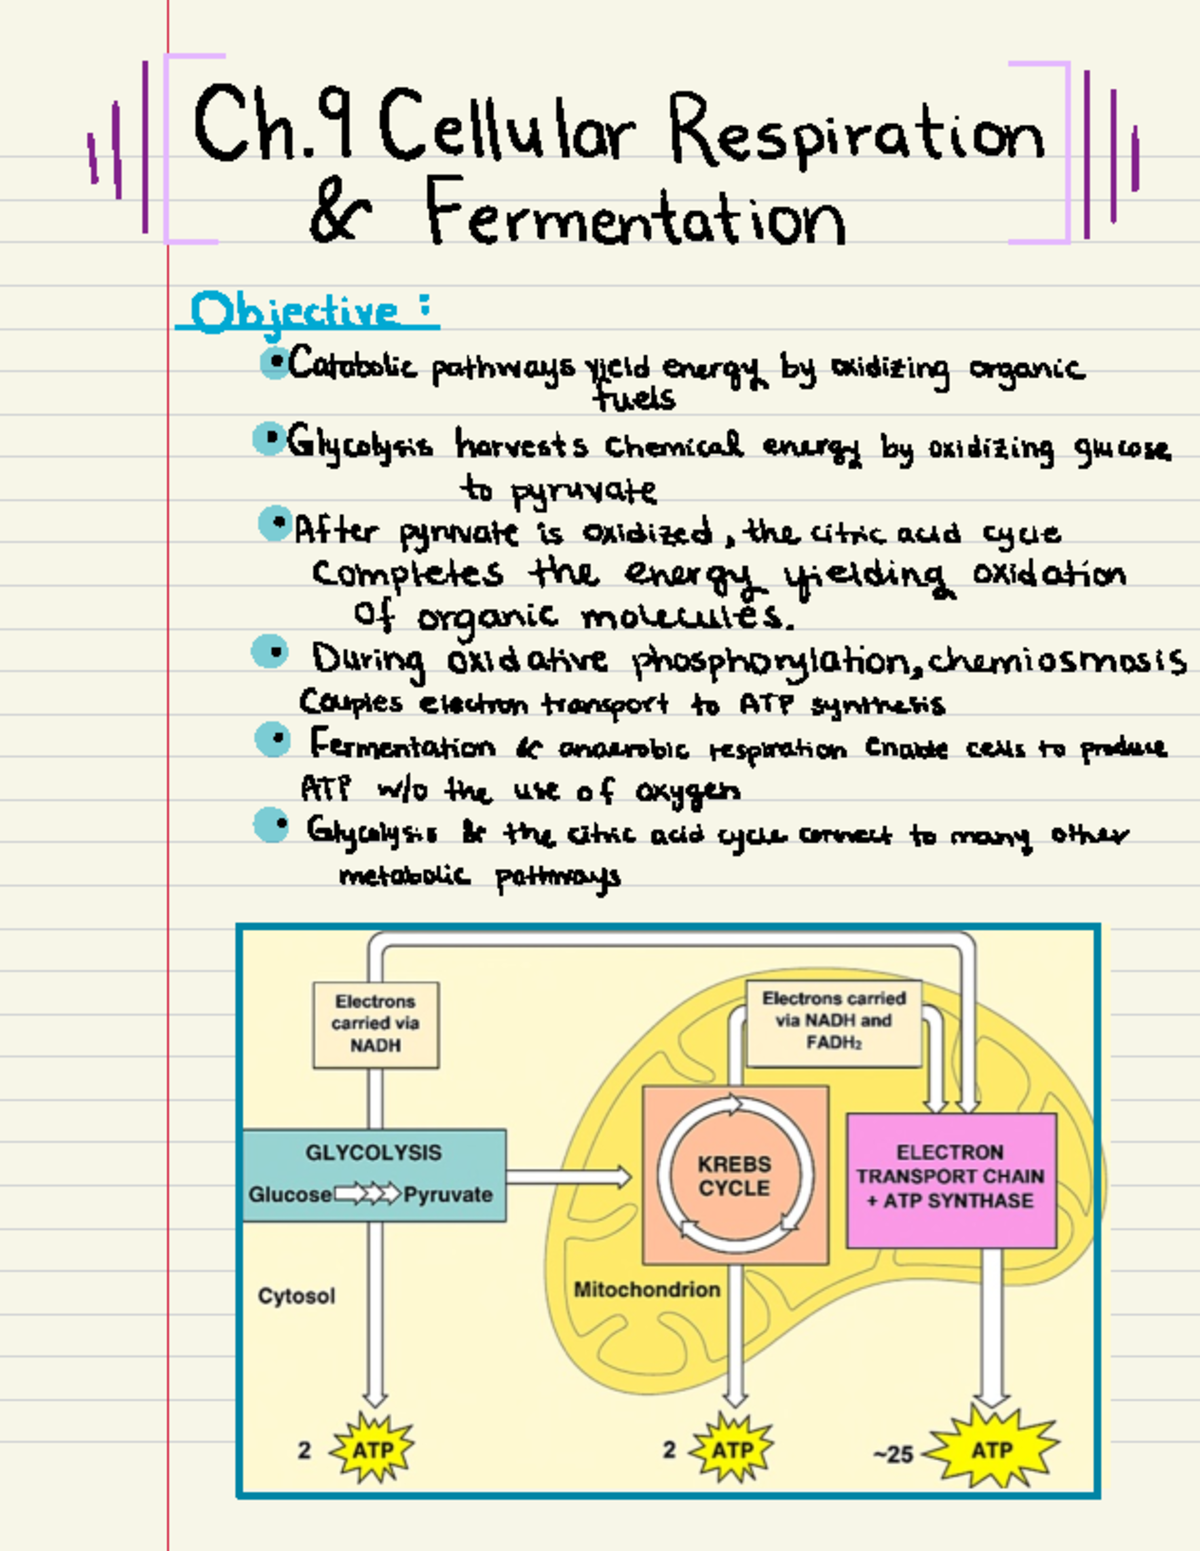 Ch.9 Cellular Respiration
& Fermentation
Objective:
Catabolic pathways yield energy by oxidizing organic
fuels
Glycolysis harvests chemical energy by oxidizing glucose
to pyruvate
After pyruvate is oxidized, the citric acid cycle
completes the energy yielding oxidation
of organic molecules.
During oxidative phosphorylation, chemiosmosis
Couples electron transport to ATP synthesis
Fermentation & anaerobic respiration Enable cells to produce
ATP w/o the use of oxygen
Glycolysis & the citric acid cycle connect to many other
metabolic pathways
Electrons
carried via
NADH
Electrons carried
via NADH and
FADH₂
GLYCOLYSIS
Glucose Pyruvate
KREBS
CYCLE
ELECTRON
TRANSPORT CHAIN
+ ATP SYNTHASE
Cytosol
Mitochondrion
2 ATP
2 ATP
~25 ATP